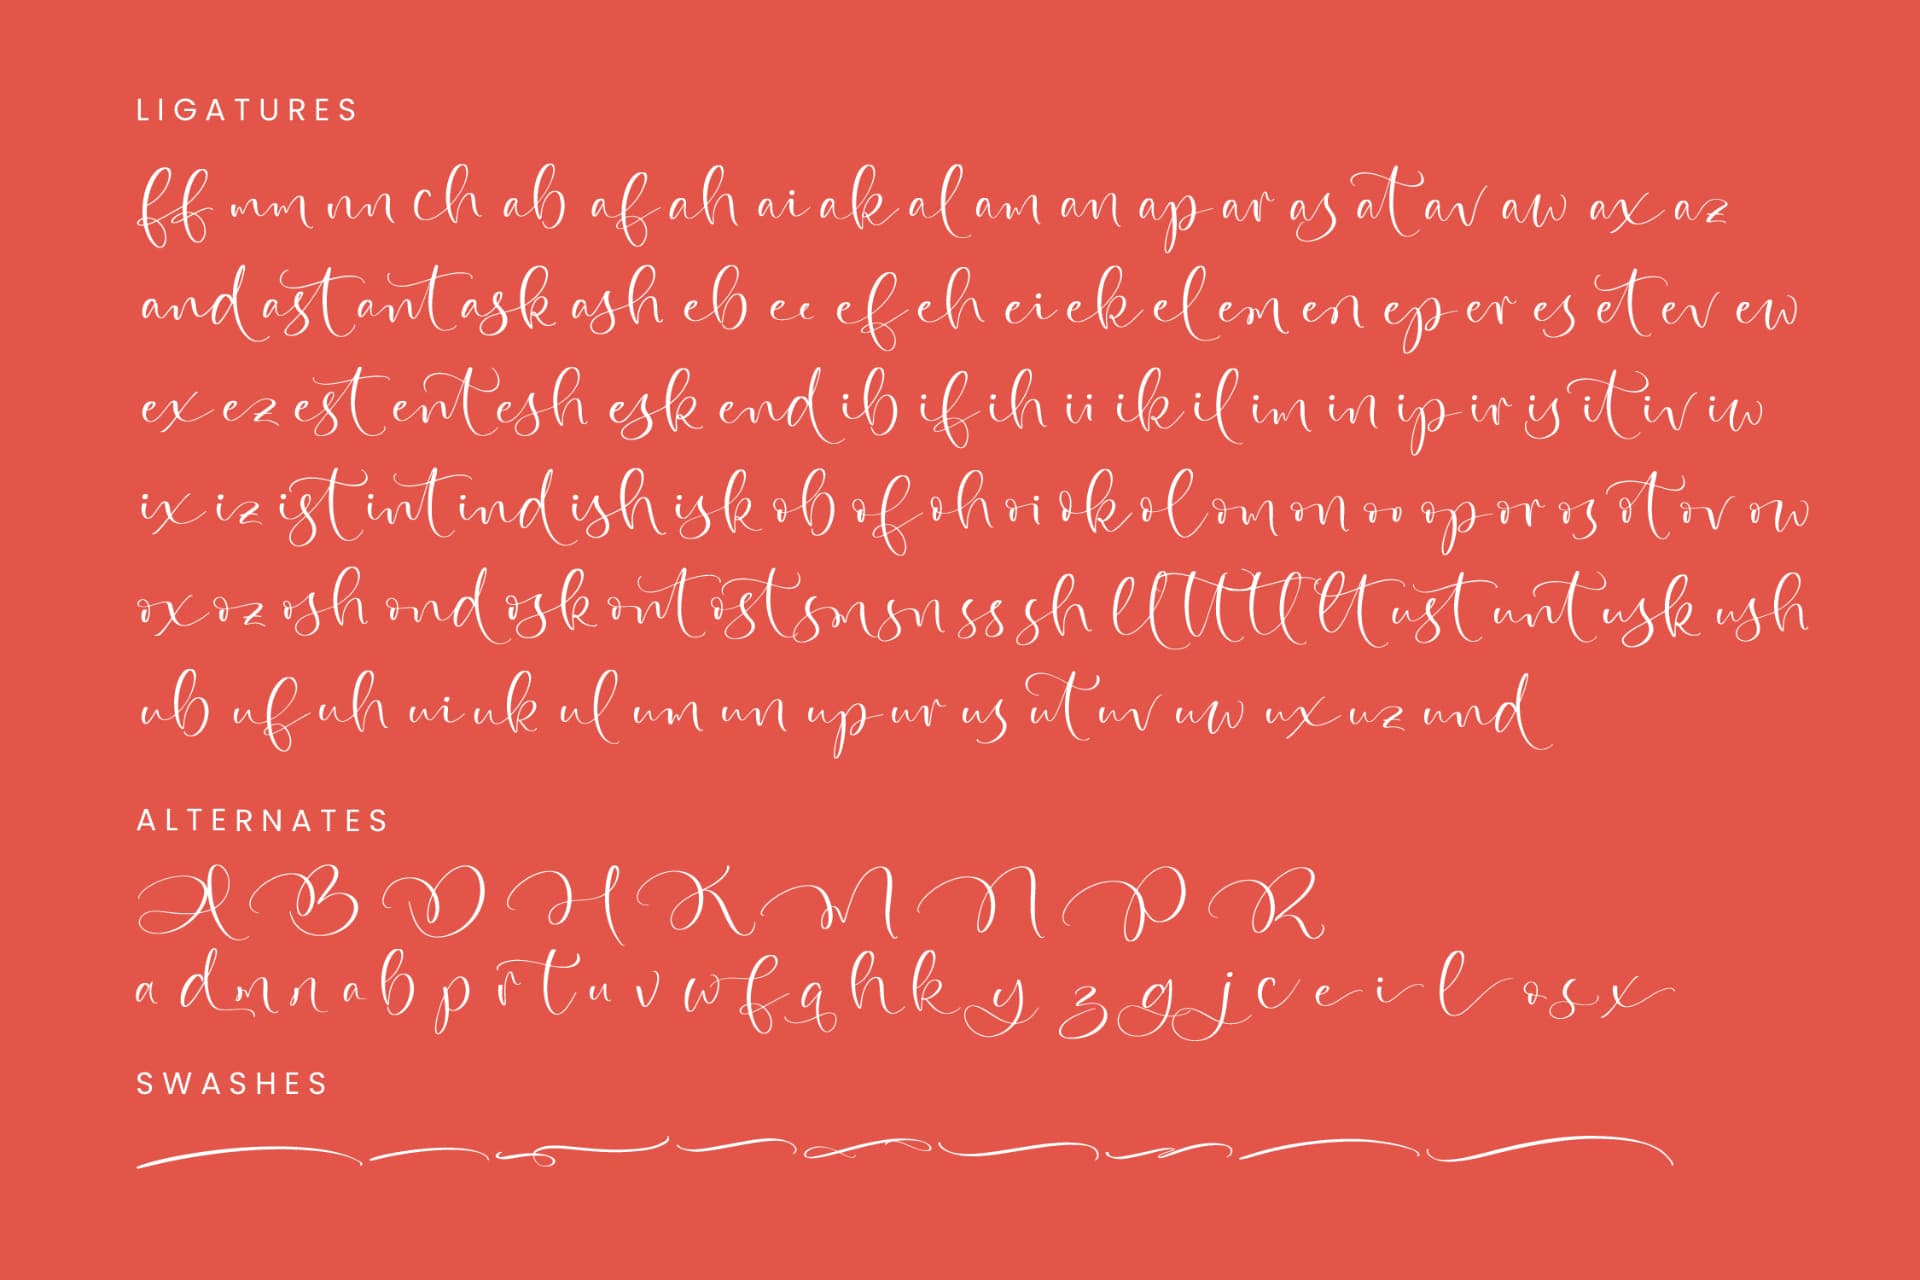 LIGATURES
ff mm nn ch ab af ah ai ak al am an ap ar as at av aw ax az
and ast ant ask ash eb ee ef eh ei ek el em en ep er es et ev ew
ex ez est ent esh esk end ib if ih ii ik il im in ip ir is it iv iw
ix iz ist int ind ish isk ob of oh oi ok ol om on oo op or os ot ov ow
ox oz osh ond osk ont ost sm sn ss sh ll tt tl lt ust unt usk ush
ub uf uh ui uk ul um un up ur us ut uv uw ux uz und
ALTERNATES
A B D H K M N P R
a d m n a b p r t u v w f q h k y z g j c e i l o s x
SWASHES